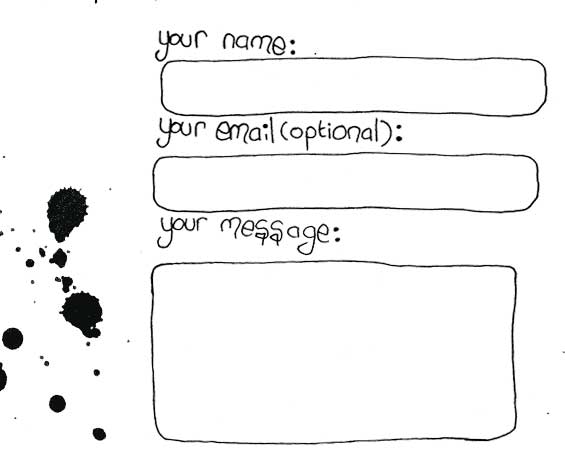 your name:
your email(optional):
your message: